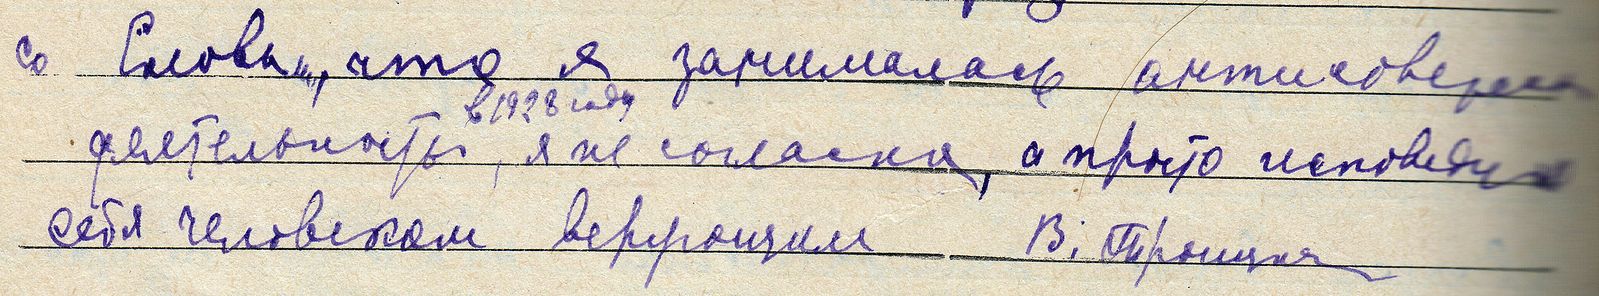 со словами, что я занималась антисоветск
в 1928 году
деятельностью, я не согласна, а просто исповедую
себя человеком верующим В. Троицкая